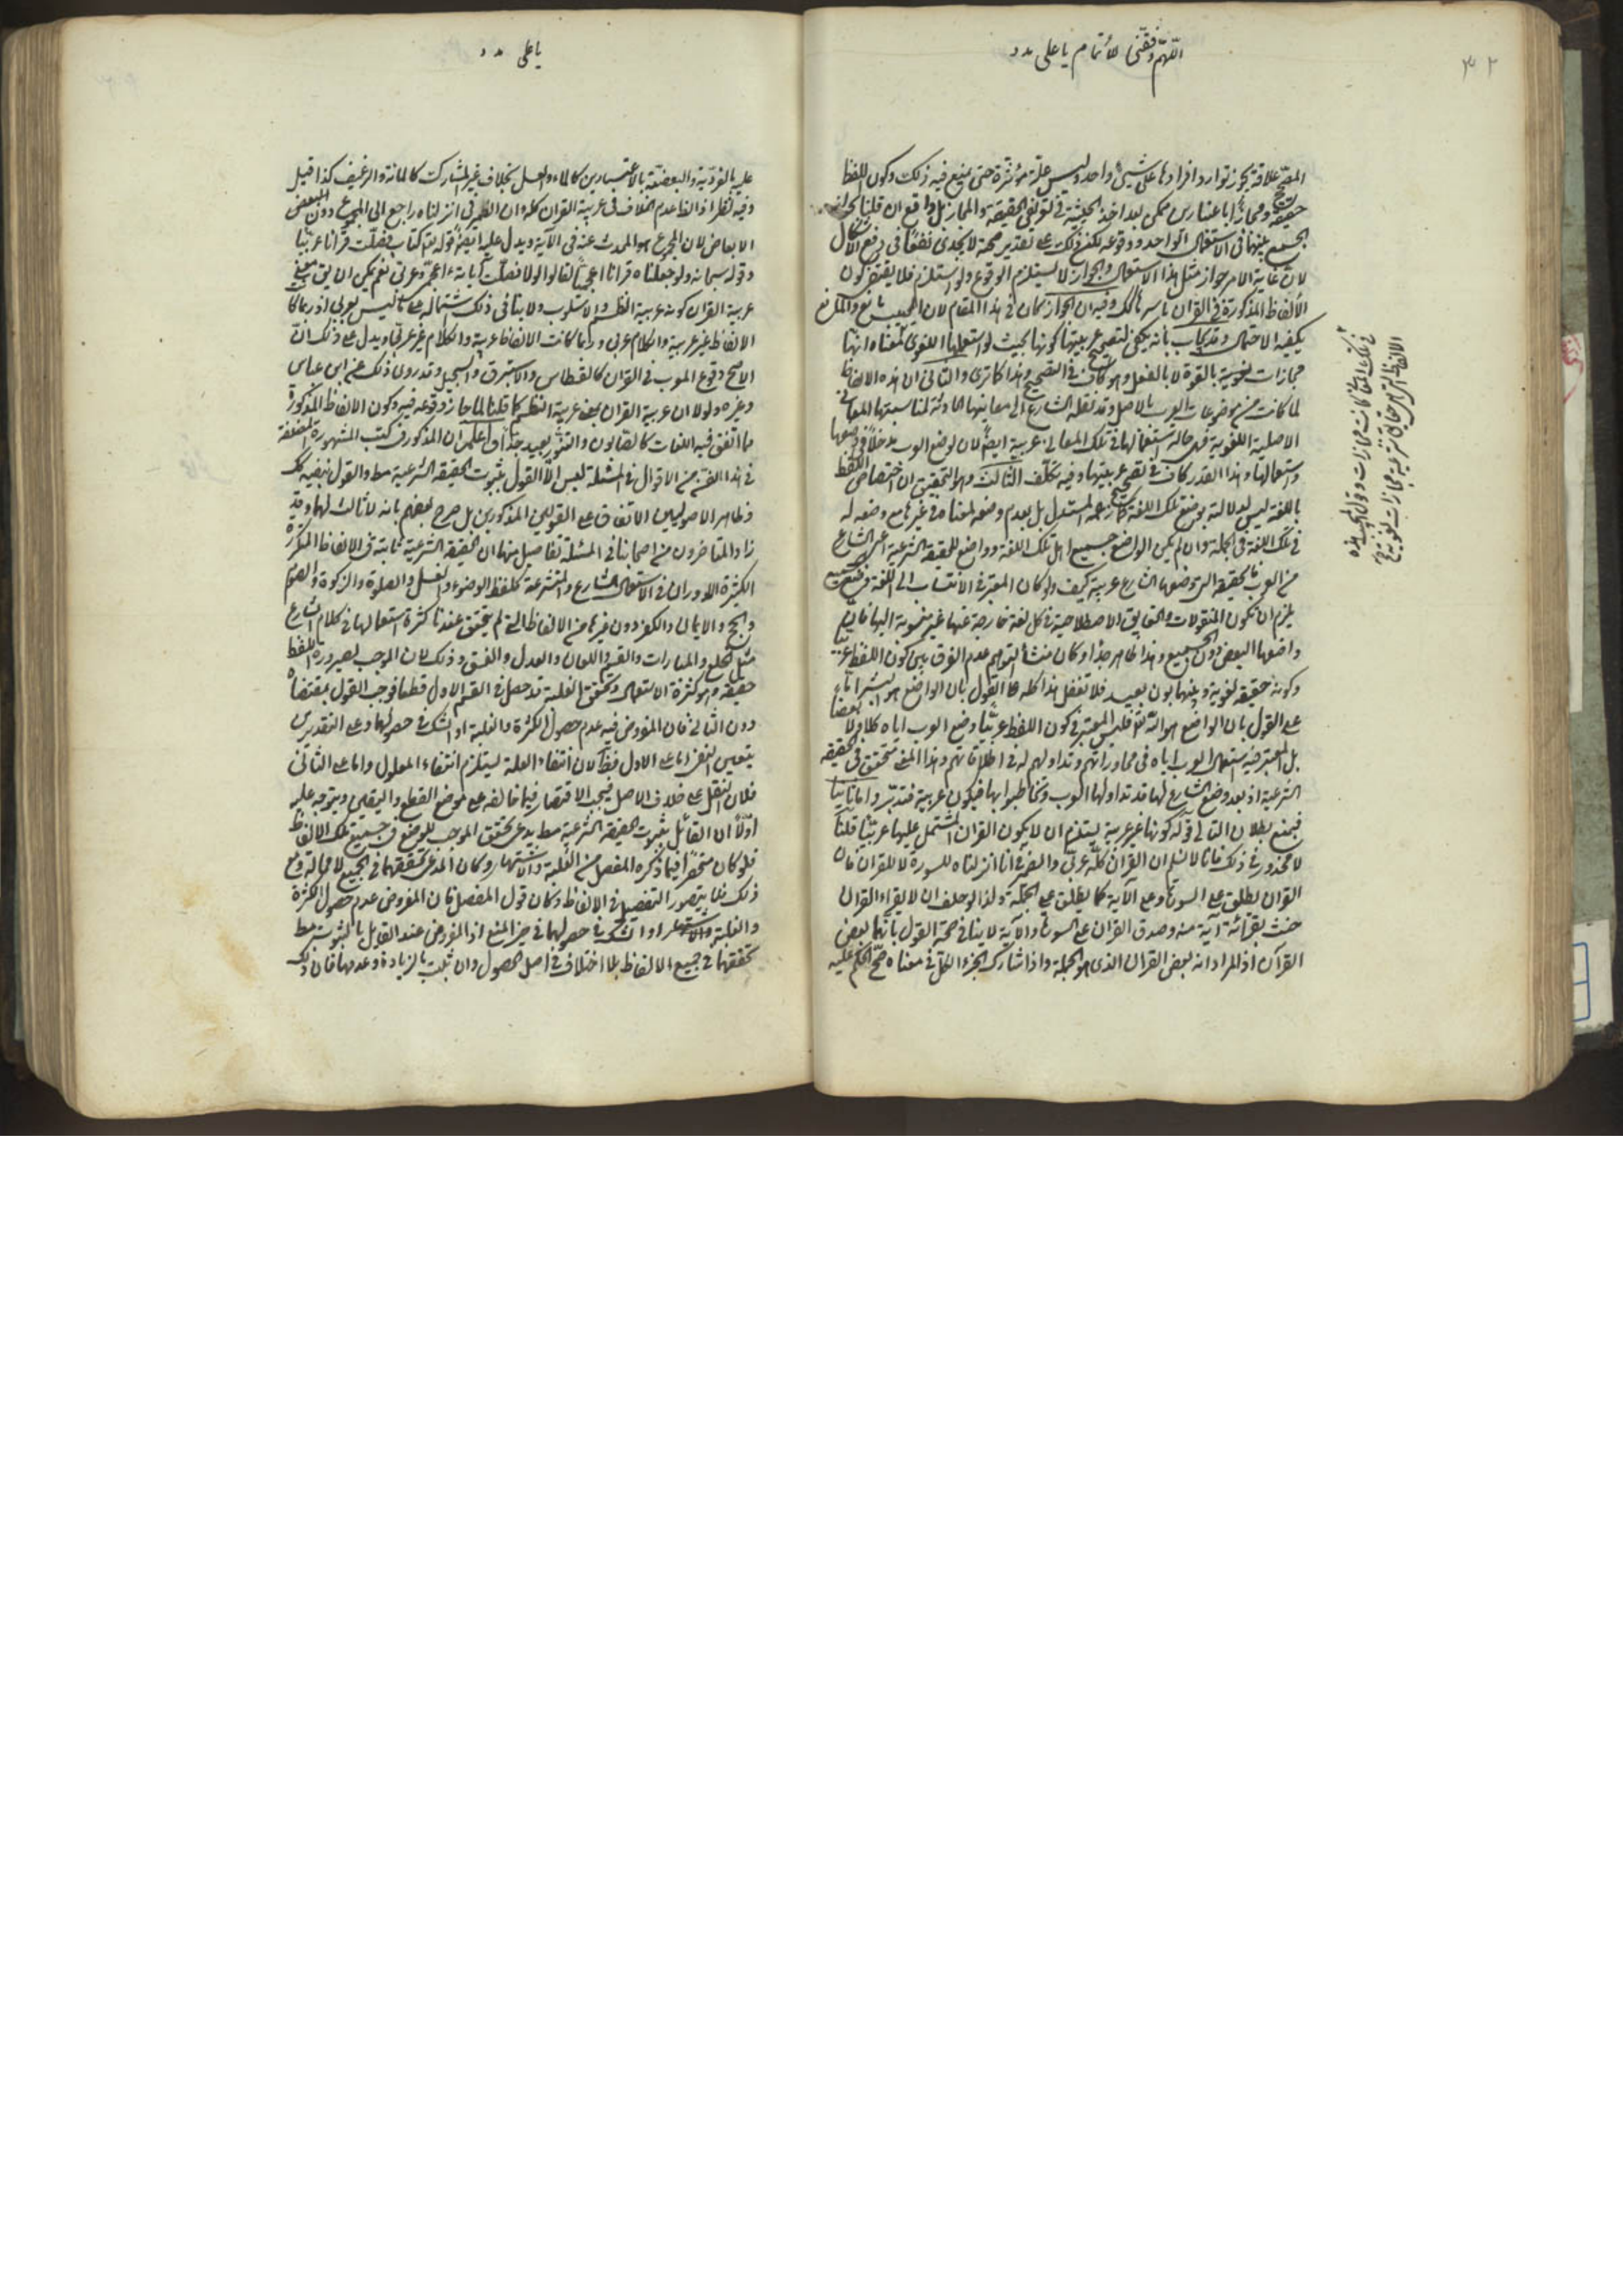 ٣٢
اللهم وفقني للاتمام يا على مدد
علاقة يجوز توارد افرادها على شيئ واحد وليس علة مؤثرة حتى يمنع فيه ذلك وكون اللفظ
حقيقة ومجازا باعتبارين ممكن بعد اخذ الحيثية في تعريفي الحقيقة والمجاز بل واقع ان قلنا بجواز
الجمع بينهما في الاستعمال الواحد ووقوعه لكن ذلك على تقدير صحته لا يجدى نفعا في رفع الاشكال
لان غاية الامر جواز مثل هذا الاستعمال والجواز لا يستلزم الوقوع ولو استلزم فلا يقتضى كون
الالفاظ المذكورة في القرآن باسرها كذلك وفيه ان الجواز كاف في هذا المقام لان المجيب مانع والمانع
يكفيه الاحتمال وقد يجاب بانه يكفي لتصحيح عربيتها كونها بحيث لو استعملها اللغوى لمعناه انها
مجازات لغوية بالقوة لا بالفعل وهو كاف في التصحيح وهذا كما ترى والثاني ان هذه الالفاظ
لما كانت من موضوعات العرب بالاصل وقد نقله الشارع الى معانيها الحادثة لمناسبتها للمعاني
الاصلية اللغوية فهى حالة استعمالها في تلك المعاني عربية ايضا لان لوضع العرب مدخلا في وضعها
واستعمالها وهذا القدر كاف في تصحيح عربيتها وفيه تكلف الثالث وهو التحقيق ان اختصاص اللفظ
باللغة ليس لدلالته بوضع تلك اللغة كما زعمه المستدل بل بعدم وضعه لمعناه في غيرها مع وضعه له
في تلك اللغة في الجملة وان لم يكن الواضع جميع اهل تلك اللغة وواضع الحقيقة الشرعية اعنى الشارع
من العرب فالحقيقة التى وضعها الشارع عربية كيف ولو كان المعتبر في الانتساب الى اللغة وضع جميع
يلزم ان تكون المنقولات والحقايق الاصطلاحية في كل لغة خارجة عنها غير منسوبة اليها فان
واضعها البعض دون الجميع وهذا ظاهر جدا وكان منشأ التوهم عدم الفرق بين كون اللفظ عربيا
وكونه حقيقة لغوية وبينهما بون بعيد فلا تغفل هذا كله على القول بان الواضع هو البشر اما
على القول بان الواضع هو الله تعالى فليس المعتبر في كون اللفظ عربيا وضع العرب اياه كلا ولا بعضا
بل المعتبر فيه استعمال العرب اياه في محاوراتهم وتداولهم له في اطلاقاتهم وهذا المعنى متحقق في الحقيقة
الشرعية اذ بعد وضع الشارع لها قد تداولها العرب وتخاطبوا بها فيكون عربية فتدبر واما ثانيا
فبمنع بطلان التالي قوله كونها غير عربية يستلزم ان لا يكون القرآن المشتمل عليها عربيا قلنا
لا محذور في ذلك فانا لا نسلم ان القرآن كله عربي والضمير في انا انزلناه للسورة لا للقرآن فان
القرآن يطلق على السورة وعلى الآية كما يطلق على الجملة ولذا لو حلف ان لا يقرأ القرآن
حنث بقرائة آية منه وصدق القرآن على السورة والآية لا ينافي صحة القول بانهما بعض
القرآن اذ المراد انه بعض القرآن الذى هو الجملة واذا شارك الجزء الكل في معناه صح الحكم عليه
يا على مدد
عليه بالفردية والبعضية بالاعتبارين كالماء والعسل بخلاف غير المشارك كالمائة والرغيف كذا قيل
وفيه نظر اذ الظاهر عدم الخلاف في عربية القرآن كله وان الضمير في انزلناه راجع الى المجموع دون البعض
الابعاض لان المجموع هو المحدث عنه في الآية ويدل عليه ايضا قوله تعالى كتاب فصلت قرآنا عربيا
وقوله سبحانه ولو جعلناه قرآنا اعجميا لقالوا لولا فصلت آياته ءاعجمى وعربي نعم يمكن ان يق معنى
عربية القرآن كونه عربية النظم والاسلوب ولا ينافي ذلك اشتماله على ما ليس بعربي اذ ربما كان
الالفاظ غير عربية والكلام عربي وربما كانت الالفاظ عربية والكلام غير عربي ويدل على ذلك ان
الاصح وقوع المعرب في القرآن كالقسطاس والاستبرق والسجيل وقد روى ذلك عن ابن عباس
وغيره ولولا ان عربية القرآن بمعنى عربية النظم كما قلنا لما جاز وقوعه فيه وكون الالفاظ المذكورة
مما اتفق فيه اللغات كالصابون والتنور بعيد جدا واعلم ان المذكور في كتب المشهورة المصنفة
في هذا الفن من الاقوال في المسئلة ليس الا القول بثبوت الحقيقة الشرعية مط والقول بنفيه كك
وظاهر الاصوليين الاتفاق على القولين المذكورين بل صرح بعضهم بانه لا ثالث لهما وقد
زاد المتاخرون من اصحابنا في المسئلة تفاصيل منها ان الحقيقة الشرعية ثابتة في الالفاظ المتكررة
الكثيرة الدوران في الاستعمال الشارع والمتشرعة كلفظ الوضوء والغسل والصلوة والزكوة والصوم
والحج والايمان والكفر دون غيرها من الالفاظ التى لم يتحقق عندنا كثرة استعمالها في كلام الشارع
مثل الخلع والمبارات والفسخ واللعان والعدل والفسق وذلك لان الموجب لصيرورة اللفظ
حقيقة هو كثرة الاستعمال وتحقق الغلبة قد حصل في القسم الاول قطعا فوجب القول بمقتضاه
دون الثاني فان المفروض فيه عدم حصول الكثرة والغلبة او الشك في حصولها وعلى التقديرين
يتعين النفي اما على الاول فظ لان انتفاء العلة يستلزم انتفاء المعلول واما على الثاني
فلان النقل على خلاف الاصل فيجب الاقتصار فيما خالفه على موضع القطع واليقين ويتوجه عليه
اولا ان القائل بثبوت الحقيقة الشرعية مط يدعى تحقق الموجب للوضع في جميع تلك الالفاظ
فلو كان منحصرا فيما ذكره المفصل من الغلبة والاشتهار وكان المدعى تحققهما في الجميع لا محالة ومع
ذلك فلا يتصور التفصيل في الالفاظ وكان قول المفصل فان المفروض عدم حصول الكثرة
والغلبة والاشتهار او الشك في حصولهما في حيز المنع اذ المفروض عند القائل بالثبوت مط
تحققهما في جميع الالفاظ بلا اختلاف في اصل الحصول وان تفاوت بالزيادة وعدمها فان ذلك